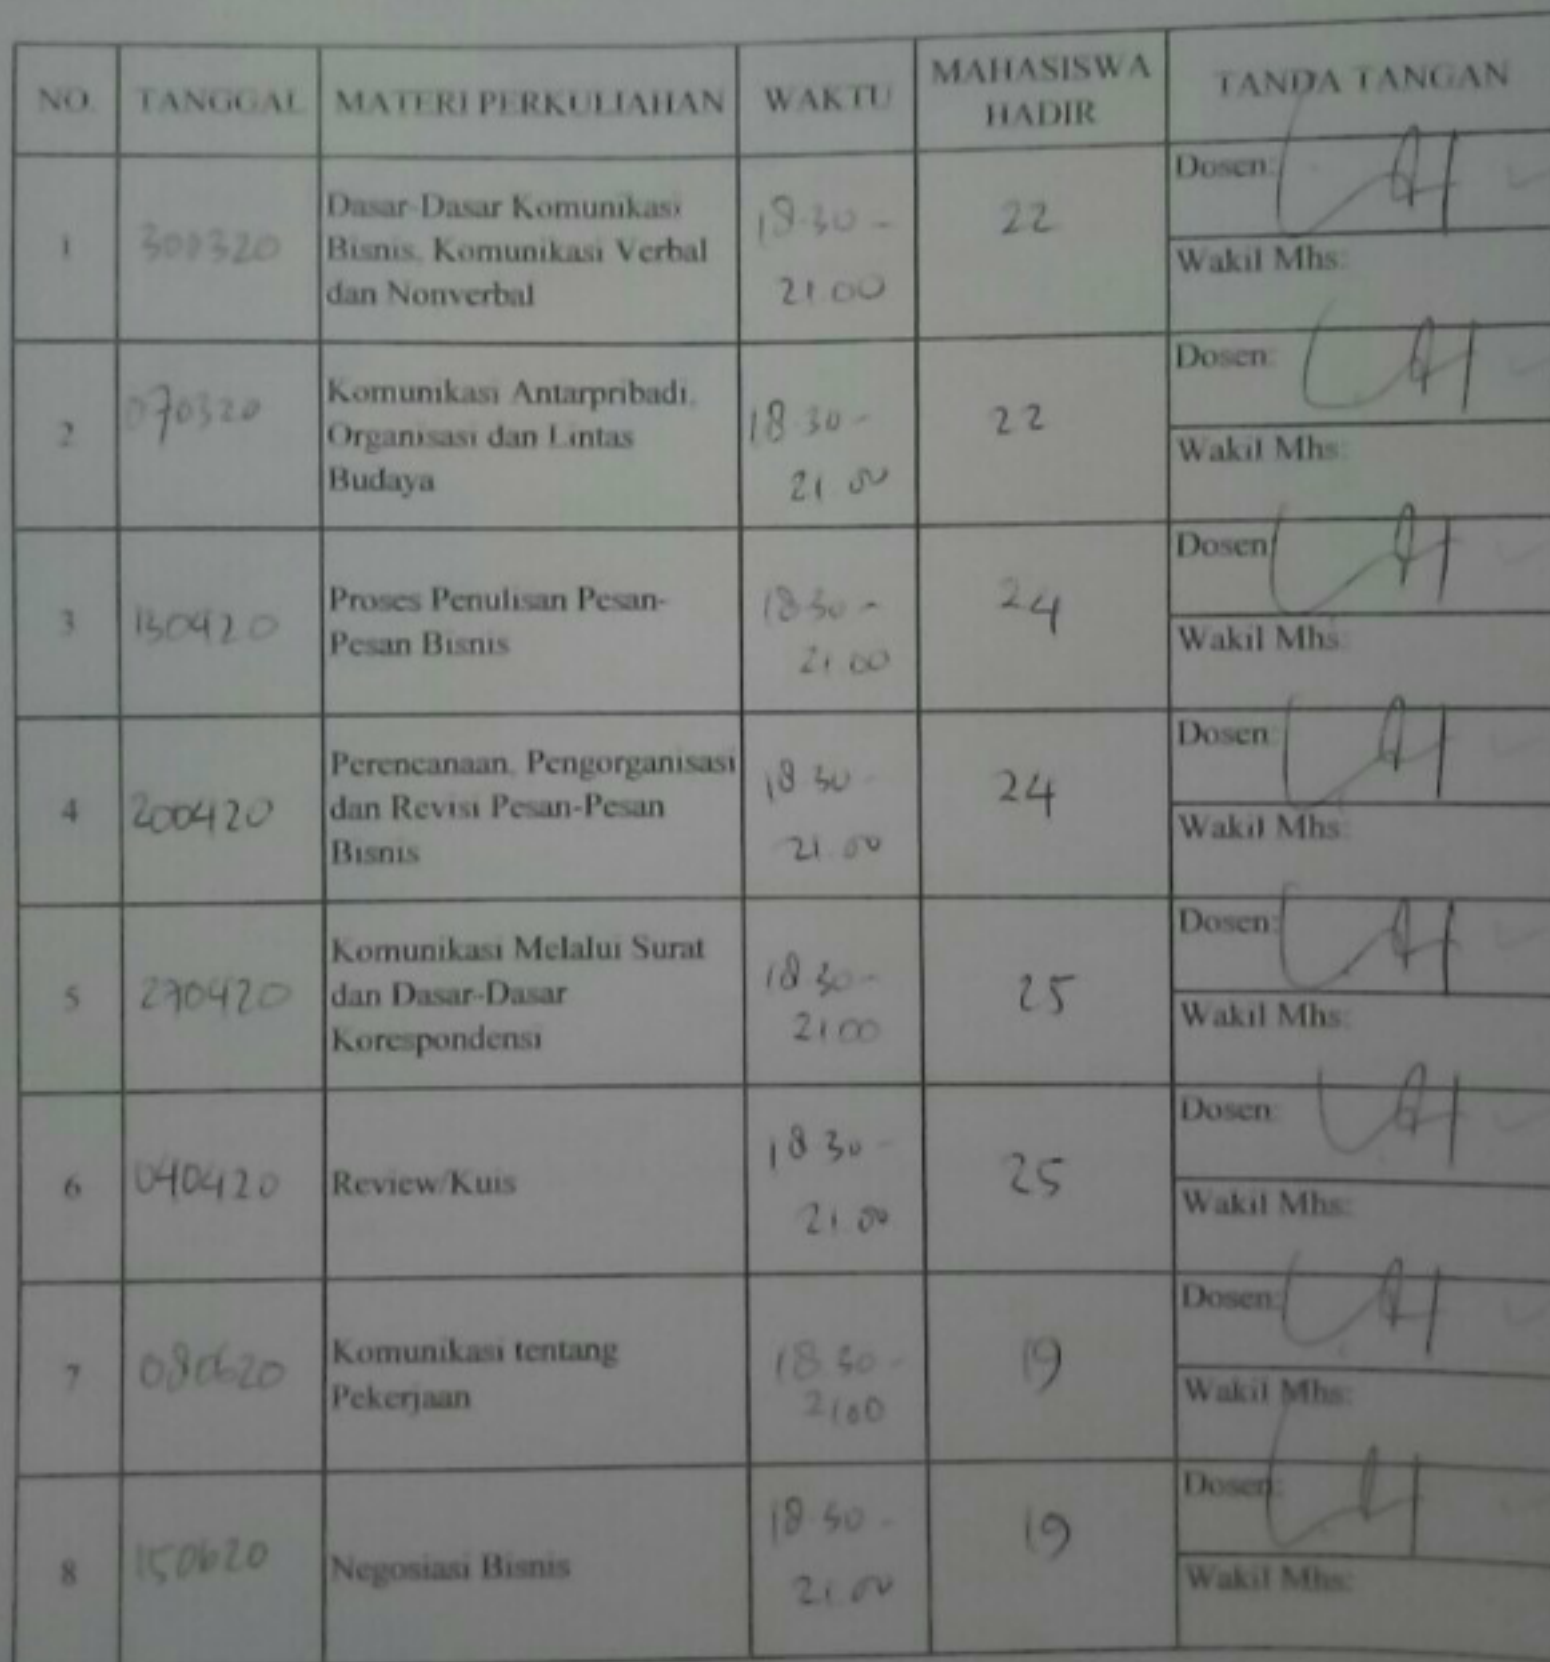 NO. TANGGAL MATERI PERKULIAHAN WAKTU MAHASISWA HADIR TANDA TANGAN
1 300320 Dasar-Dasar Komunikasi
Bisnis, Komunikasi Verbal
dan Nonverbal
18.30 -
21.00
22
Dosen:
Wakil Mhs:
2 070320 Komunikasi Antarpribadi,
Organisasi dan Lintas
Budaya
18.30 -
21.00
22
Dosen:
Wakil Mhs:
3 130420 Proses Penulisan Pesan-
Pesan Bisnis
18.30 -
21.00
24
Dosen:
Wakil Mhs:
4 200420 Perencanaan, Pengorganisasi
dan Revisi Pesan-Pesan
Bisnis
18.30 -
21.00
24
Dosen:
Wakil Mhs:
5 270420 Komunikasi Melalui Surat
dan Dasar-Dasar
Korespondensi
18.30 -
21.00
25
Dosen:
Wakil Mhs:
6 040420 Review/Kuis
18.30 -
21.00
25
Dosen:
Wakil Mhs:
7 080620 Komunikasi tentang
Pekerjaan
18.30 -
21.00
19
Dosen:
Wakil Mhs:
8 150620 Negosiasi Bisnis
18.30 -
21.00
19
Dosen:
Wakil Mhs: